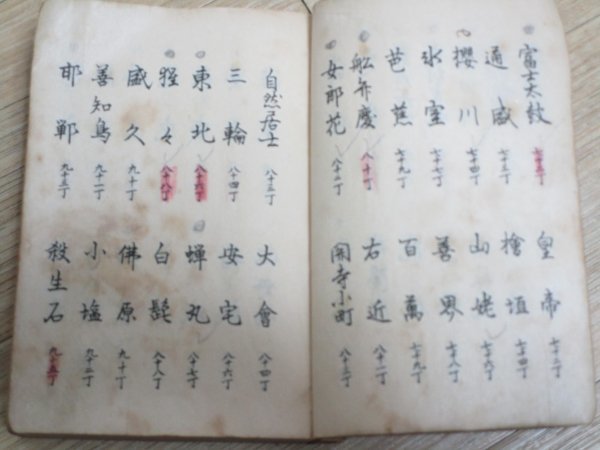 富士太鼓
通盛
櫻川 七十四丁
氷室 七十七丁
芭蕉 七十九丁
船弁慶 八十丁
女郎花
皇帝
檜垣 七十四丁
山姥 七十六丁
善界 七十八丁
百萬 七十九丁
右近
関寺小町
自然居士 八十三丁
三輪 八十四丁
東北 八十六丁
猩々 八十八丁
盛久 九十丁
善知鳥 九十一丁
邯鄲
大會 八十四丁
安宅 八十六丁
蝉丸 八十七丁
白髭 八十八丁
佛原 九十丁
小塩 九十二丁
殺生石